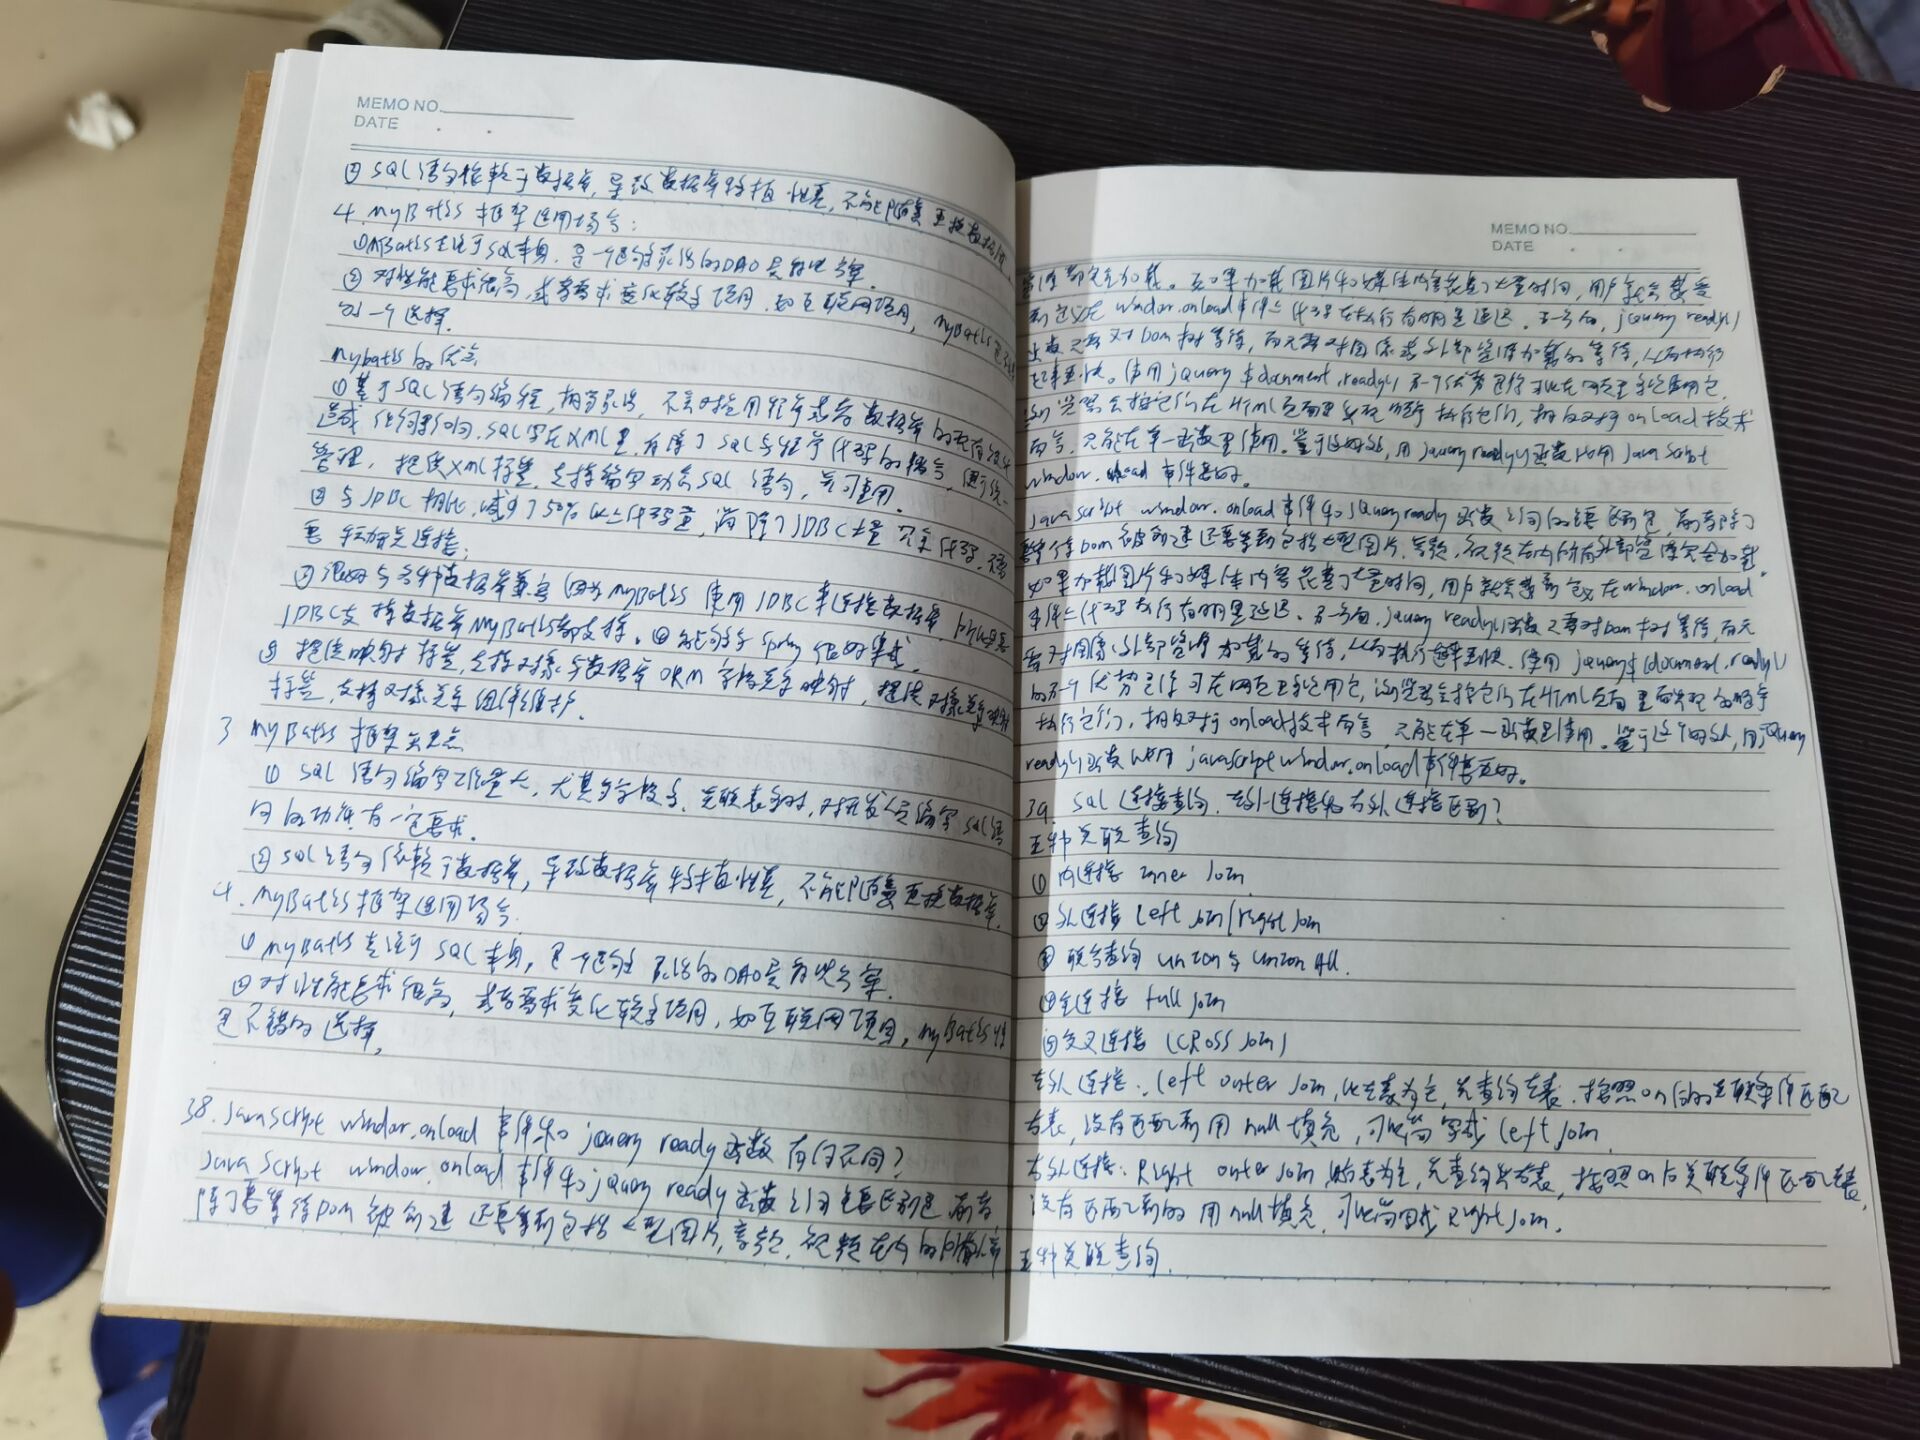 MEMO NO.
DATE
② SQL语句依赖于数据库,导致数据库移植性差,不能随意更换数据库.
4. MyBatis 框架适用场合:
①MyBatis专注于SQL本身,是一个足够灵活的DAO层解决方案.
② 对性能要求很高,或者需求变化较多项目,如互联网项目,MyBatis
的一个选择.
Mybatis的优点
①基于SQL语句编程,相当灵活,不会对应用程序或者数据库的现有设计
造成任何影响,SQL写在XML里,解除了SQL与程序代码的耦合,便于统一
管理,提供XML标签,支持编写动态SQL语句,并可重用.
② 与JDBC相比,减少了50%以上代码量,消除了JDBC大量冗余代码,不需
要手动开关连接;
③很好与各种数据库兼容(因为MyBatis 使用JDBC来连接数据库,所以只要
JDBC支持数据库MyBatis都支持.④能够与Spring很好集成.
⑤ 提供映射标签,支持对象与数据库ORM字段关系映射,提供对象关系映射
标签,支持对象关系组件维护.
3 MyBatis 框架缺点
① SQL语句编写工作量大,尤其多字段多、关联表多时,对开发人员编写SQL语
句的功底有一定要求.
② SQL语句依赖于数据库,导致数据库移植性差,不能随意更换数据库.
4. MyBatis框架适用场合.
① MyBatis专注于SQL本身,是一个足够灵活的DAO层解决方案.
②对性能要求很高,或者需求变化较多项目,如互联网项目,MyBatis
是不错的选择.
38. JavaScript window.onload 事件和 jQuery ready函数有何不同?
JavaScript window.onload事件和jQuery ready函数之间主要区别是,前者
除了要等待DOM被创建还要等到包括大型图片,音频,视频在内的所有外部
MEMO NO.
DATE
资源都完全加载。如果加载图片和媒体内容花费了大量时间,用户就会感受
到定义在window.onload事件上代码在执行有明显延迟.另一方面,jQuery ready()
函数只需对Dom树等待,而无需对图像或外部资源加载的等待,从而执行
起来更快。使用jQuery $document.ready()另一个优势是你可以在网页里多次使用它,
浏览器会按它们在HTML页面里出现顺序执行它们,相反对于onload技术
而言,只能在单一函数里使用.鉴于这好处,用jQuery ready()函数比用JavaScript
window.onload 事件要好。
JavaScript window.onload事件和jQuery ready函数之间的主要区别是,前者除了
要等待Dom被创建还要等到包括大型图片,音频,视频在内所有外部资源完全加载.
如果加载图片和媒体内容花费了大量时间,用户就会感到定义在window.onload
事件上代码执行有明显延迟.另一方面,jQuery ready()函数只要对Dom树等待,而无
需对图像外部资源加载的等待,从而执行起来更快.使用jQuery$(document.ready()
的另一个优势是你可在网页里多次用它,浏览器会按它们在HTML页面里出现的顺序
执行它们,相反对于onload技术而言,只能在单一函数里使用.鉴于这个好处,用jQuery
ready()函数比用javascript window.onload事件要更好。
39. sql连接查询.左外连接和右外连接区别?
五种关联查询
① 内连接 inner Join
② 外连接 left join/right join
③ 联合查询 union与union All.
④全连接 full join
⑤交叉连接 (CROSS Join)
左外连接:left outer Join,以左表为主,先查询左表.按照on后的关联条件匹配
右表,没有匹配到用null填充,可以简写成left join.
右外连接:Right outer Join,以右表为主,先查询出右表,按照on后关联条件匹配左表,
没有匹配到的用null填充.可以简写成Right Join.
五种关联查询.